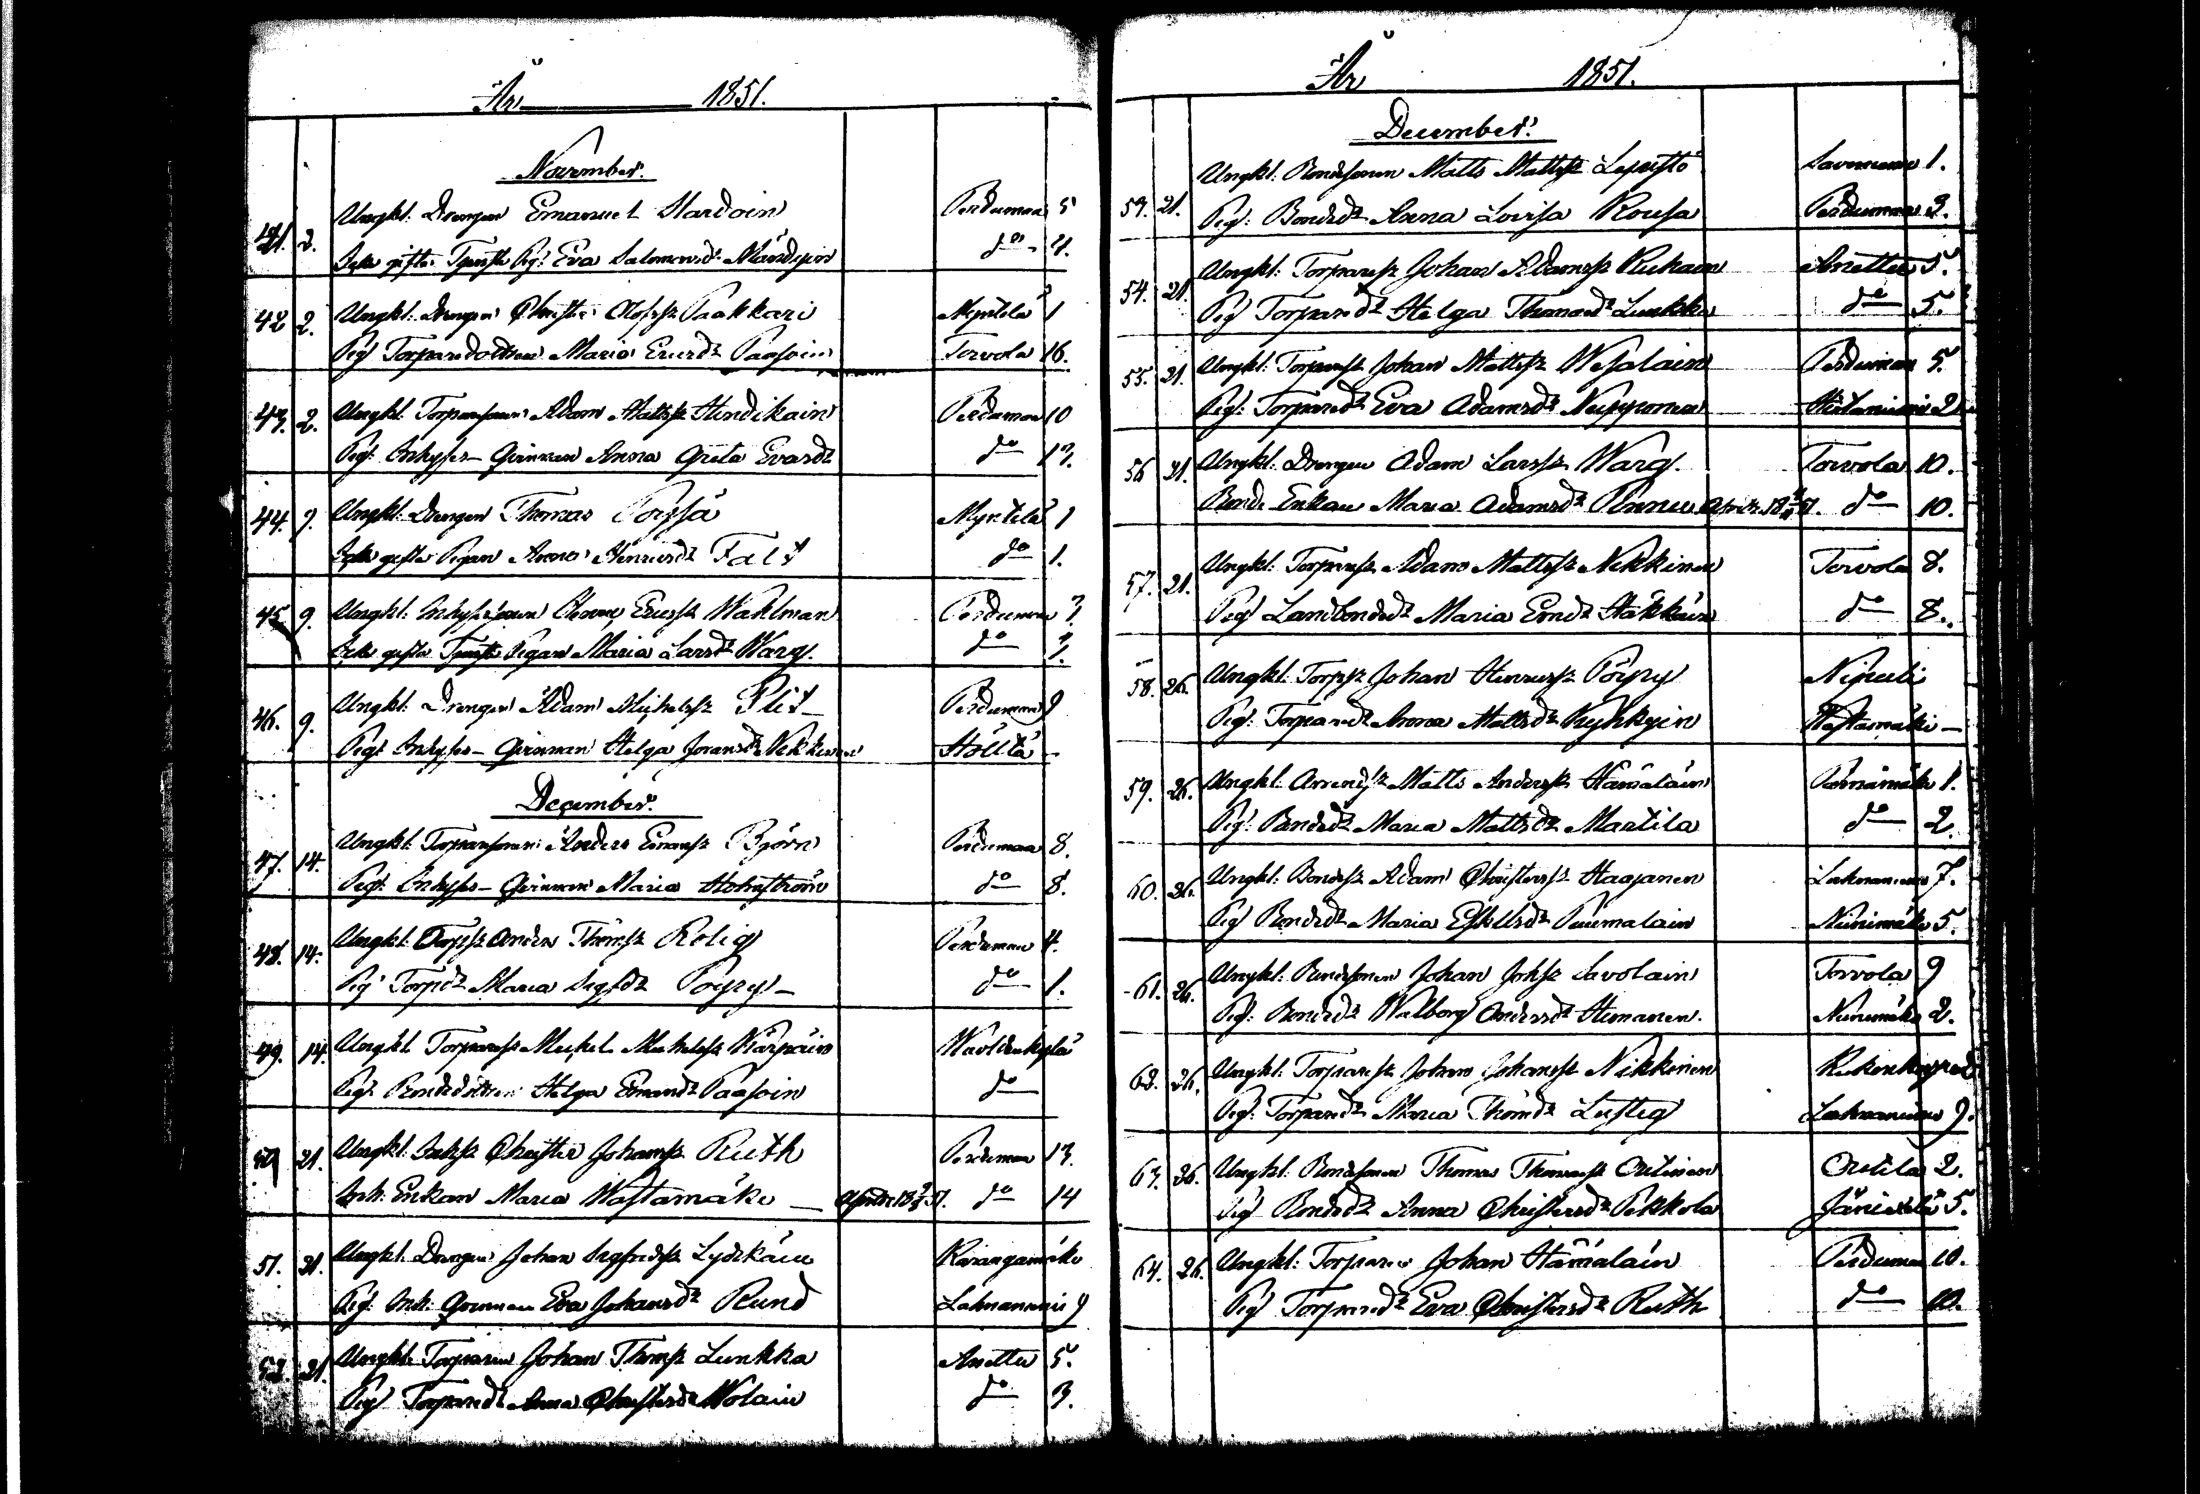 År 1851.
November.
41. 2. Ungkl. Drengen Emanuel Hardoin Perdumaa 5
Icke gifta Pig: Eva Salomonsdr do 4.
42 2. Ungkl. Drengen Christer Olofssr Paakkari Myntilä 1
Pig Torparedottren Maria Ericsdr Paasoin Torvola 16.
43. 2. Ungkl. Torparesonen Adam Mattssr Hindikain Perdumaa 10
Pig: Inhyses Qvinnan Anna Greta Evardr do 13.
44. 9. Ungkl. Drengen Thomas Pöyhä Myntilä 1
Icke gifta Pigan Anna Henricsdr Falt do 1.
45 9. Ungkl. Inhysessonen Ericssr Wahlman Perdumaa
Icke gifta Pigan Maria Larsdr Warg. do
46. 9. Ungkl. Drengen Adam Michelssr Plit Perdumaa 9
Pig: Inhyses Qvinnan Helga Joransdr Nikkinen Hölttä
December.
47. 14. Ungkl. Torparesonen Anders Emanssr Björn Perdumaa 8.
Pig: Inhyses Qvinnan Maria Hohnström do 8.
48. 14. Ungkl. Torpssr Anders Thomssr Rolig Perdumaa 4.
Pig Torpdr Maria Sigfdr Pöyry do 1.
49. 14. Ungkl. Torparessr Michel Michelssr Kärpäin
Pig: Bondedottren Helga Emandr Paasoin do
50 21. Ungkl. Inhssr Christer Johanssr Ruth Perdumaa 13.
Inh: Enkan Maria Wastamäki do 14
51. 21. Ungkl. Drengen Johan Sigfredssr Lydikäin Kairangamäki
Pig: Inh: Qvinnan Eva Johansdr Rund Lahnaniemi 9
52. 21. Ungkl. Torparen Johan Thomssr Lunkka Anettu 5.
Pig Torparedr Anna Christersdr Wolain do 3.
År 1851.
December.
53. 21. Ungkl. Bondesonen Matts Mattssr Lepistö 1.
Pig: Bondedr Anna Lovisa Rousa Perdumaa 3.
54. 21. Ungkl: Torparessr Johan Adamssr Rukain Anettu 5.
Pig Torparedr Helga Thomasdr Lunkka do 5.
55. 21. Ungkl: Torparessr Johan Mattssr Wesalain Perdumaa 5.
Pig: Torparedr Eva Adamsdr Nupponen 2
56 21. Ungkl: Drengen Adam Larssr Warg. Torvola 10.
Bonde Enkan Maria Adamsdr Pennu do 10.
57. 21. Ungkl: Torparessr Adam Mattssr Nikkinen Torvola 8.
Pig Landbondedr Maria Emdr Häkkäin do 8.
58. 26. Ungkl: Torpssr Johan Henricssr Pöyry Nipuli
Pig: Torparedr Anna Mattsdr Kyhkyin Wastamäki
59. 26. Ungkl: Matts Anderssr Hämäläin 1.
Pig: Bondedr Maria Mattsdr Martila do 2.
60. 26. Ungkl: Bondessr Adam Christerssr Haajanen Lahnaniemi 7.
Pig Bondedr Maria Eskilsdr Niinimäki 5.
61. 26. Ungkl: Bondesonen Johan Johssr Savolain Torvola 9
Pig: Bondedr Walborg Andersdr Himanen. Niinimäki 2.
62. 26. Ungkl: Torparessr Johan Johanssr Nikkinen
Pig: Torparedr Maria Thomdr Lustig Lahnaniemi 9.
63. 26. Ungkl: Bondesonen Thomas Thomassr Outinen Outila 2.
Pig Bondedr Anna Christersdr Pekkola 5.
64. 26. Ungkl: Torparen Johan Hämäläin Perdumaa 10.
Pig Torparedr Eva Christersdr Ruth do 10.